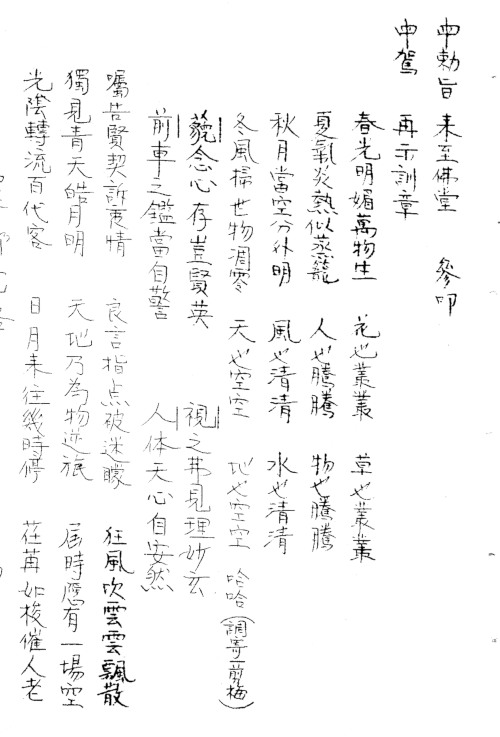 申勅旨　来至佛堂　參叩
申駕　再示訓章
春光明媚萬物生　花也叢叢　草也叢叢
夏氣炎熱似蒸籠　人也騰騰　物也騰騰
秋月當空分外明　風也清清　水也清清
冬風掃世物凋零　天也空空　地也空空　哈哈（調寄一剪梅）
藐念心存豈賢英　視之弗見理妙玄
前車之鑑當自警　人体天心自安然
囑告賢契訴衷情　良言指点被迷矇　狂風吹雲雲飄散
獨見青天皓月明　天地乃為物逆旅　屆時應有一場空
光陰轉流百代客　日月来往幾時停　荏苒如梭催人老